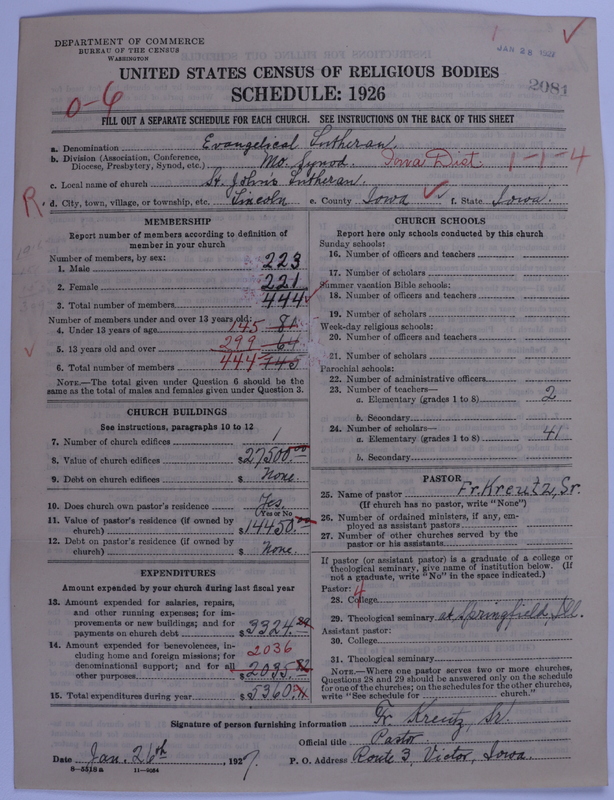 DEPARTMENT OF COMMERCE
BUREAU OF THE CENSUS
WASHINGTON
JAN 28 1927
2081
UNITED STATES CENSUS OF RELIGIOUS BODIES
SCHEDULE: 1926
0-6
FILL OUT A SEPARATE SCHEDULE FOR EACH CHURCH. SEE INSTRUCTIONS ON THE BACK OF THIS SHEET
a. Denomination Evangelical Lutheran
b. Division (Association, Conference, Diocese, Presbytery, Synod, etc.) Mo. Synod. Iowa Dist. 1-1-4
c. Local name of church St. John's Lutheran.
R. d. City, town, village, or township, etc. Lincoln e. County Iowa f. State Iowa.
MEMBERSHIP
Report number of members according to definition of
member in your church
Number of members, by sex:
1. Male 223
2. Female 221
3. Total number of members 444
Number of members under and over 13 years old:
4. Under 13 years of age 145 81
5. 13 years old and over 299 64
6. Total number of members 444 145
NOTE.—The total given under Question 6 should be the
same as the total of males and females given under Question 3.
CHURCH BUILDINGS
See instructions, paragraphs 10 to 12
7. Number of church edifices 1
8. Value of church edifices $27500.00
9. Debt on church edifices $ None.
10. Does church own pastor's residence Yes.
(Yes or No)
11. Value of pastor's residence (if owned by
church) $14450.00
12. Debt on pastor's residence (if owned by
church) $ None.
EXPENDITURES
Amount expended by your church during last fiscal year
13. Amount expended for salaries, repairs,
and other running expenses; for im-
provements or new buildings; and for
payments on church debt $3324.
14. Amount expended for benevolences, in-
cluding home and foreign missions; for
denominational support; and for all
other purposes 2036 $2035.82
15. Total expenditures during year $5360.
CHURCH SCHOOLS
Report here only schools conducted by this church
Sunday schools:
16. Number of officers and teachers
17. Number of scholars
Summer vacation Bible schools:
18. Number of officers and teachers
19. Number of scholars
Week-day religious schools:
20. Number of officers and teachers
21. Number of scholars
Parochial schools:
22. Number of administrative officers
23. Number of teachers—
a. Elementary (grades 1 to 8) 2
b. Secondary
24. Number of scholars—
a. Elementary (grades 1 to 8) 41
b. Secondary
PASTOR
25. Name of pastor Fr. Kreutz, Sr.
(If church has no pastor, write "None")
26. Number of ordained ministers, if any, em-
ployed as assistant pastors
27. Number of other churches served by the
pastor or his assistants
If pastor (or assistant pastor) is a graduate of a college or
theological seminary, give name of institution below. (If
not a graduate, write "No" in the space indicated.)
Pastor: 4
28. College
29. Theological seminary at Springfield, Ill.
Assistant pastor:
30. College
31. Theological seminary
NOTE.—Where one pastor serves two or more churches,
Questions 28 and 29 should be answered only on the schedule
for one of the churches; on the schedules for the other churches,
write "See schedule for church."
Signature of person furnishing information Fr. Kreutz, Sr.
Official title Pastor
Date Jan. 26th, 1927. P. O. Address Route 3, Victor, Iowa.
8-5518a 11-9664